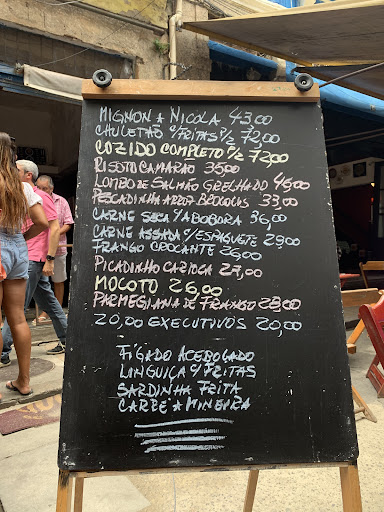 MIGNON A NICOLA 43,00
CHULETÃO C/FRITAS P/2 72,00
COZIDO COMPLETO P/2 72,00
RISOTO CAMARÃO 35,00
LOMBO DE SALMÃO GRELHADO 45,00
PESCADINHA ARROZ BROCOLIS 33,00
CARNE SECA C/ABOBORA 36,00
CARNE ASSADA C/ESPAGUETE 29,00
FRANGO CROCANTE 26,00
PICADINHO CARIOCA 27,00
MOCOTO 26,00
PARMEGIANA DE FRANGO 28,00
20,00 EXECUTIVOS 20,00
FIGADO ACEBOLADO
LINGUIÇA C/FRITAS
SARDINHA FRITA
CARRE A MINEIRA